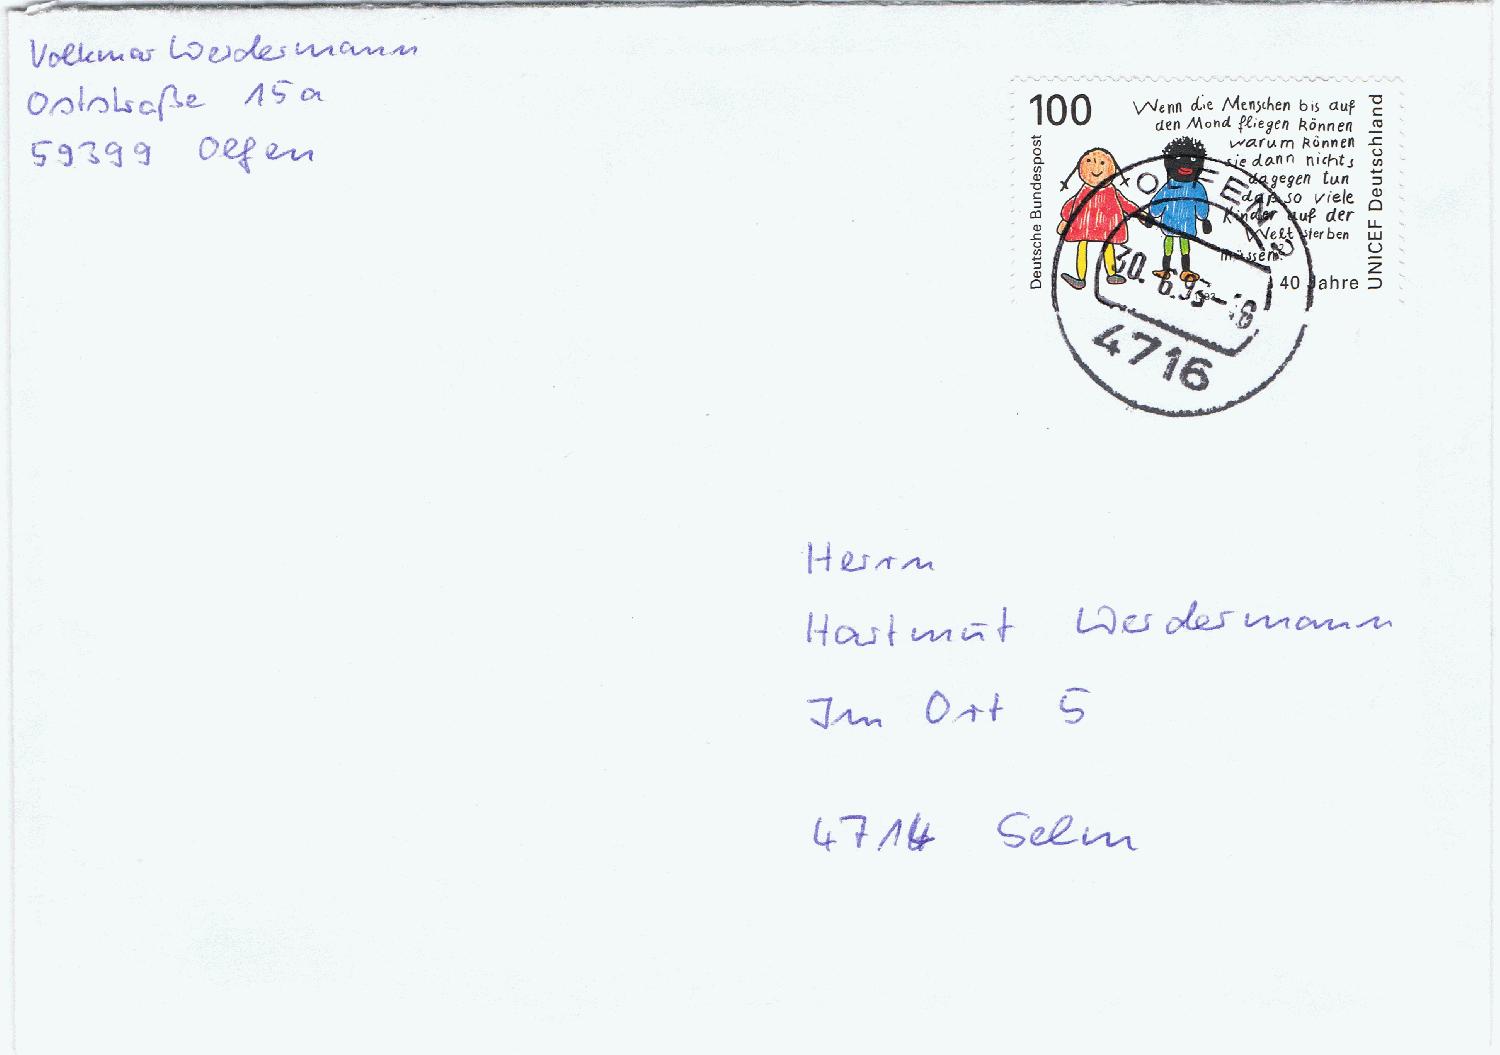 Volkmar Werdermann
Oststraße 15a
59399 Olfen
100
Deutsche Bundespost
Wenn die Menschen bis auf
den Mond fliegen können
warum können
sie dann nichts
dagegen tun
daß so viele
Kinder auf der
Welt sterben
müssen?
40 Jahre
UNICEF Deutschland
OLFEN
30.6.93-18
4716
Herrn
Hartmut Werdermann
Im Ort 5
4714 Selm